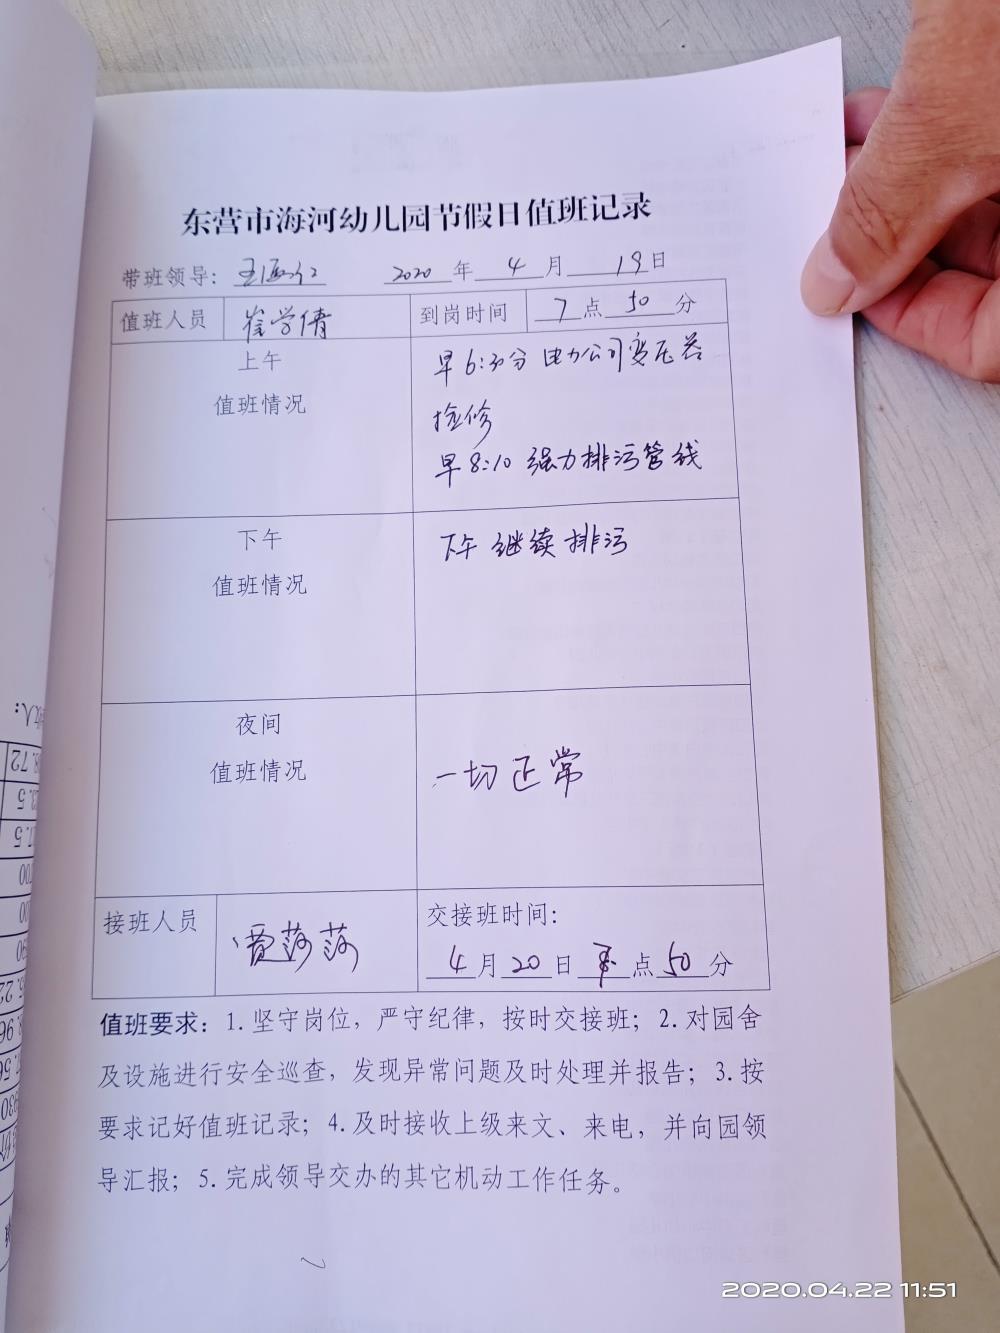 东营市海河幼儿园节假日值班记录
带班领导： 2020 年 4 月 19 日
值班人员 崔学倩 到岗时间 7 点 50 分
上午
值班情况
早6:30分 电力公司变压器
检修
早8:10 强力排污管线
下午
值班情况
下午 继续排污
夜间
值班情况
一切正常
接班人员 贾莎莎
交接班时间：
4 月 20 日 点 50 分
值班要求：1. 坚守岗位，严守纪律，按时交接班；2. 对园舍
及设施进行安全巡查，发现异常问题及时处理并报告；3. 按
要求记好值班记录；4. 及时接收上级来文、来电，并向园领
导汇报；5. 完成领导交办的其它机动工作任务。
2020.04.22 11:51